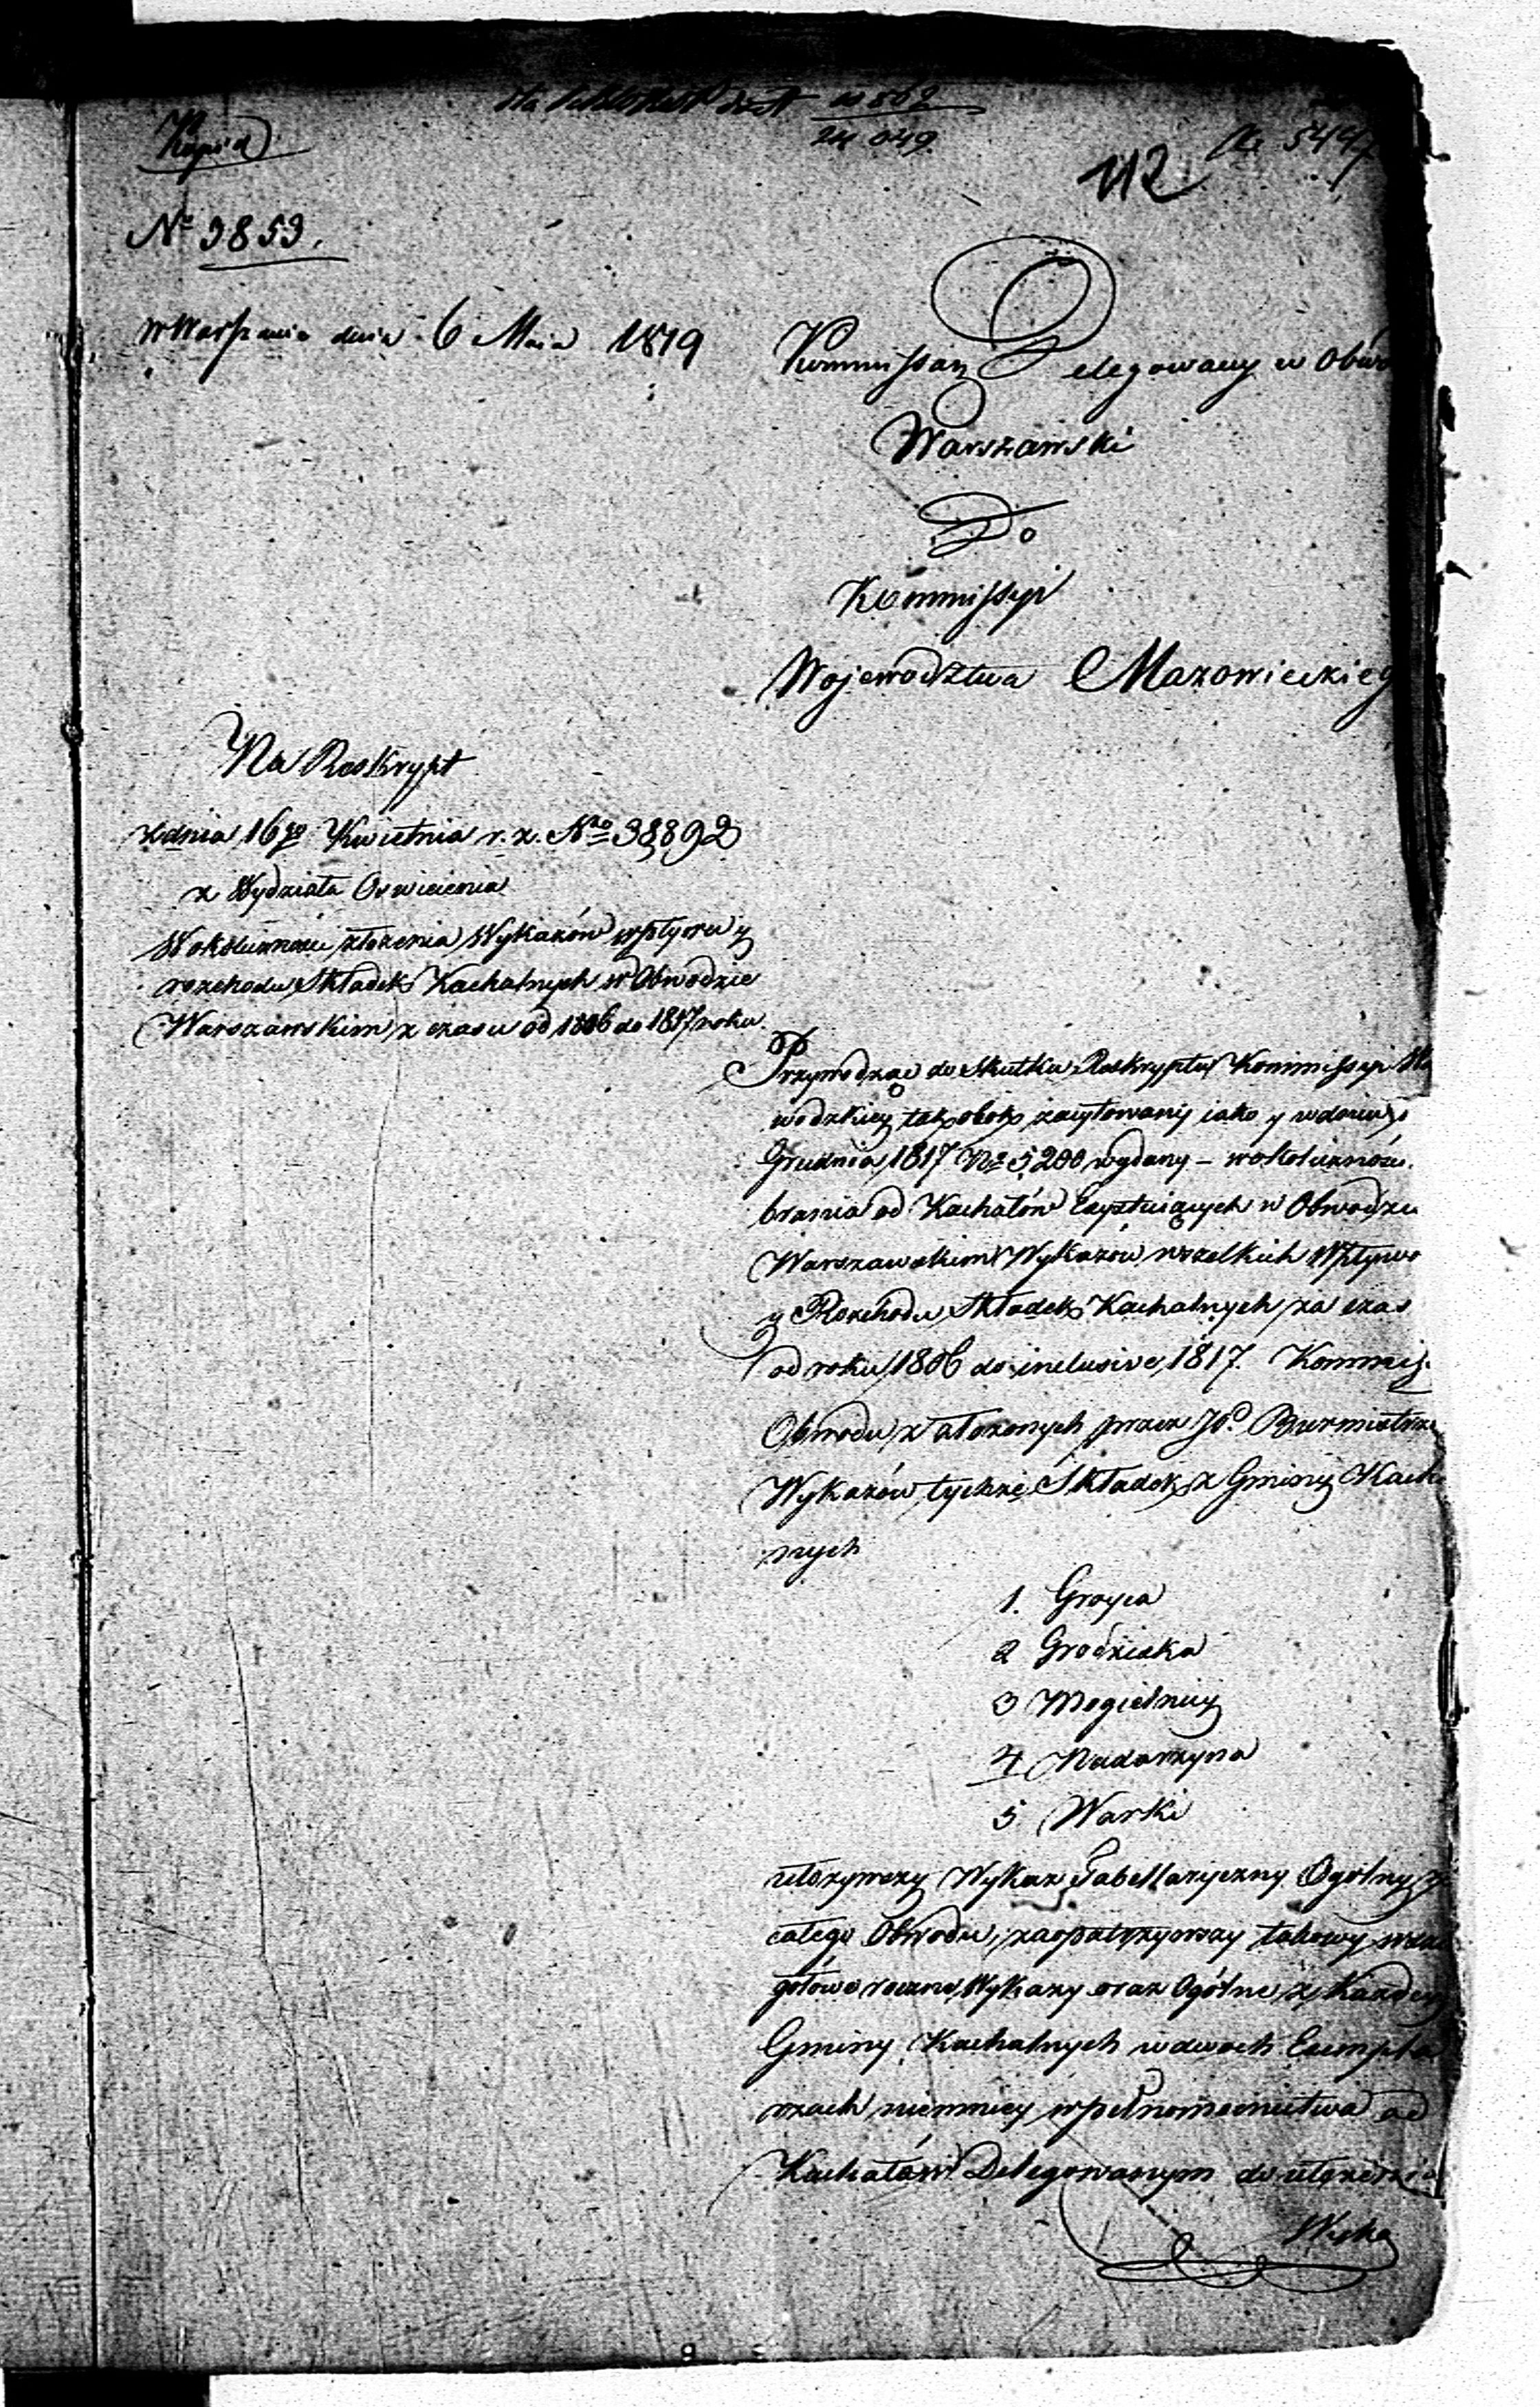 Kopia
w 502
24 049
No 544
112
No 3853.
w Warszawie dnia 6 Maia 1819
Kommissarz Delegowany w Obwo
Warszawski
Do
Kommissyi
Wojewodztwa Mazowieckieg
Na Reskrypt
z dnia 16go Kwietnia r. z. Nro 38892
z Wydziału Oswiecenia
W okoliczności złożenia Wykazów wpływu y
rozchodu Składek Kachalnych w Obwodzie
Warszawskim z czasu od 1806 do 1817 roku.
Przywodząc do Skutku Reskrypta Kommissyi Wo
wodzkiey tak obok zacytowany iako y w dniu
Grudnia 1817 No 5200 wydany – w okoliczności
brania od Kachałów Exystuiących w Obwodzie
Warszawskim Wykazów wszelkich Wpływo
y Rozchodu Składek Kachalnych za czas
od roku 1806 do inclusive 1817. Kommis.
Obwodu z złożonych przez Burmistrz
Wykazów tychże Składek z Gminy Kacha
nych
1. Groyca
2 Grodziska
3 Mogielnicy
4 Nadarzyna
5 Warki
ułożywszy Wykaz Tabellaryczny Ogólny z
całego Obwodu, zaopatrzywszy takowy
gółowe roczne Wykazy oraz Ogólne z Każdey
Gminy Kachalnych w dwóch Exempla
rzach niemniey w pełnomocnictwa od
Kachałów Delegowanym do ułożenia